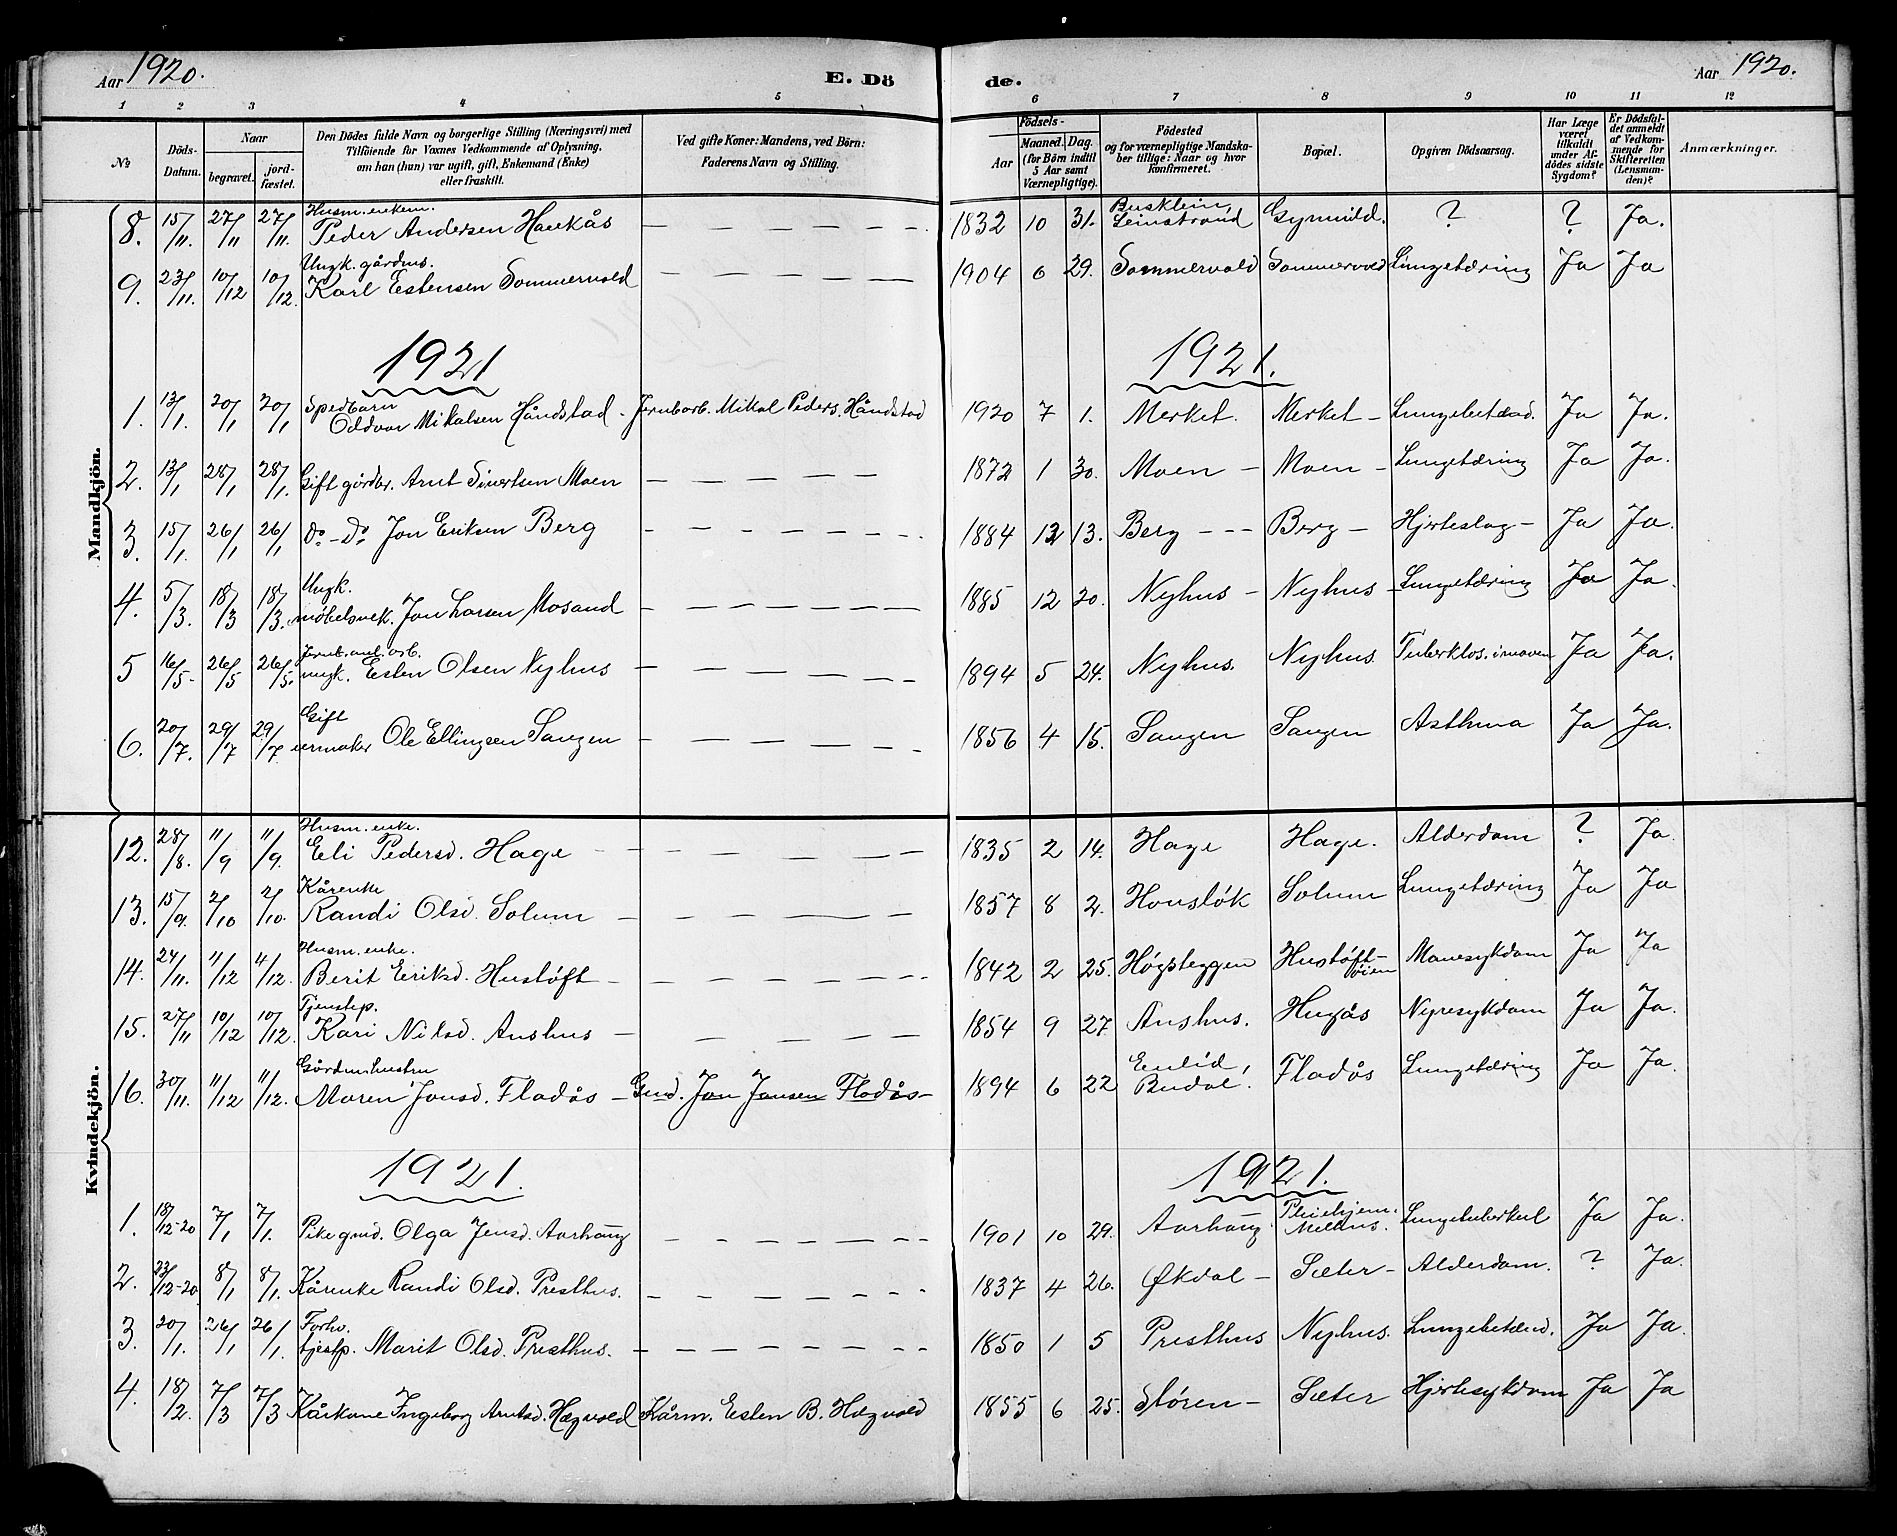 Aar 1920. E. Dö de. Aar 1920.
1 2 3 4 5 6 7 8 9 10 11 12
№ Döds-Datum. Naar begravet. jordfæstet. Den Dödes fulde Navn og borgerlige Stilling (Næringsvei) med Tilföiende for Voxnes Vedkommende af Oplysning, om han (hun) var ugift, gift, Enkemand (Enke) eller fraskilt. Ved gifte Koner: Mandens, ved Börn: Faderens Navn og Stilling. Födsels- Aar Maaned. Dag. (for Börn indtil 5 Aar samt Værnepligtige). Födested og for værnepligtige Mandskaber tillige: Naar og hvor konfirmeret. Bopæl. Opgiven Dödsaarsag. Har Læge været tilkaldt under Afdödes sidste Sygdom? Er Dödsfaldet anmeldt af Vedkommende for Skifteretten (Lensmanden)? Anmærkninger.
Mandkjön.
8. 15/11. 27/11 27/11. Husm. enkem. Peder Andersen Haukås — 1832 10 31. Busklein, Leinstrand Gynnild. ? ? Ja.
9. 23/11. 10/12 10/12. Ungk. gårdms. Karl Estensen Sommervold — 1904 6 29. Sommervold Sommervold Lungetæring Ja Ja
1921 1921.
1. 13/1. 20/1 20/1. Spedbarn Oddvar Mikalsen Håndstad - Jernbarb. Mikal Peders. Håndstad 1920 7 1. Merket. Merket - Lungebetænd. Ja Ja.
2. 13/1 28/1 28/1. Gift gårdbr. Arnt Sivertsen Moen — 1872 1 30. Moen - Moen - Lungetæring Ja Ja.
3. 15/1. 26/1 26/1 Do - Do. Jon Eriksen Berg — 1884 12 13. Berg - - - Berg - Hjerteslag - Ja Ja.
4. 5/3. 18/3 18/3. Ungk. møbelsnek. Jon Larsen Mosand — 1885 12 20. Nyhus - Nyhus - Lungetæring Ja Ja.
5 16/5. 26/5 26/5. Jernb.anl.arb. ungk. Esten Olsen Nyhus — 1894 5 24. Nyhus. Nyhus. Tuberklos. i maven Ja Ja.
6. 20/7. 29/7 29/7. Gift urmaker Ole Ellingsen Sangen — 1856 4 15. Sangen Sangen Asthma Ja Ja.
Kvindekjön.
12. 28/8. 11/9 11/9. Husm. enke. Eli Pedersd. Hage — 1835 2 14. Hage Hage. Alderdom ? Ja.
13. 15/9. 2/10 2/10. Kårenke Randi Olsd. Solum — 1857 8 2. Housløk Solum Lungetæring Ja Ja
14. 24/11. 11/12 4/12. Husm. enke. Berit Eriksd. Hustøft — 1842 2 25. Høgsteggen Hustøft-øien Mavesykdom Ja Ja
15. 27/11 10/12 10/12. Tjenstep. Kari Nilsd. Aushus — 1854 9 27 Aushus. Hugås Nyresykdom Ja Ja.
16. 30/11. 11/12 11/12. Gårdmshustru Maren Jonsd. Fladås - Gmd. Jon Jonsen Fladås - 1894 6 22 Enlid, Budal. Fladås Lungetæring Ja Ja.
1921. 1921.
1. 18/12-20 7/1 7/1. Pike gmd. Olga Jensd. Aarhaug — 1901 10 29. Aarhaug. Pleiehjem. Melhus. Lungetuberkul Ja Ja.
2. 23/12-20. 8/1 8/1. Kårenke Randi Olsd. Presthus. — 1837 4 26. Økdal - Sæter - Alderdom. ? Ja.
3. 20/1. 26/1 26/1. Forhv. tjestp. Marit Olsd. Presthus. — 1850 1 5 Presthus Nyhus. Lungebetænd. Ja Ja.
4. 18/2. 7/3 7/3 Kårkone Ingeborg Arntsd. Hægvold Kårm. Esten B. Hægvold 1855 6 25. Støren - Sæter Hjertesykdom Ja Ja